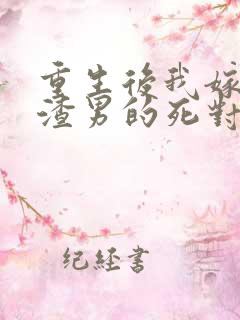 重生後我嫁
渣男的死對
纪经书